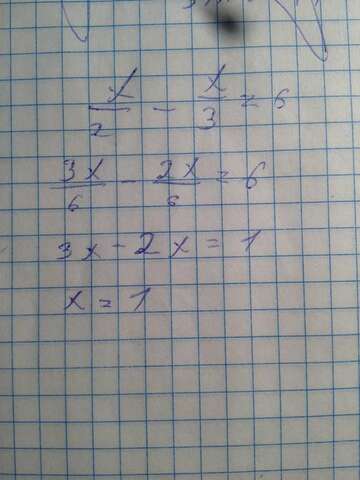 x/2 - x/3 = 6
3x/6 - 2x/6 = 6
3x - 2x = 1
x = 1